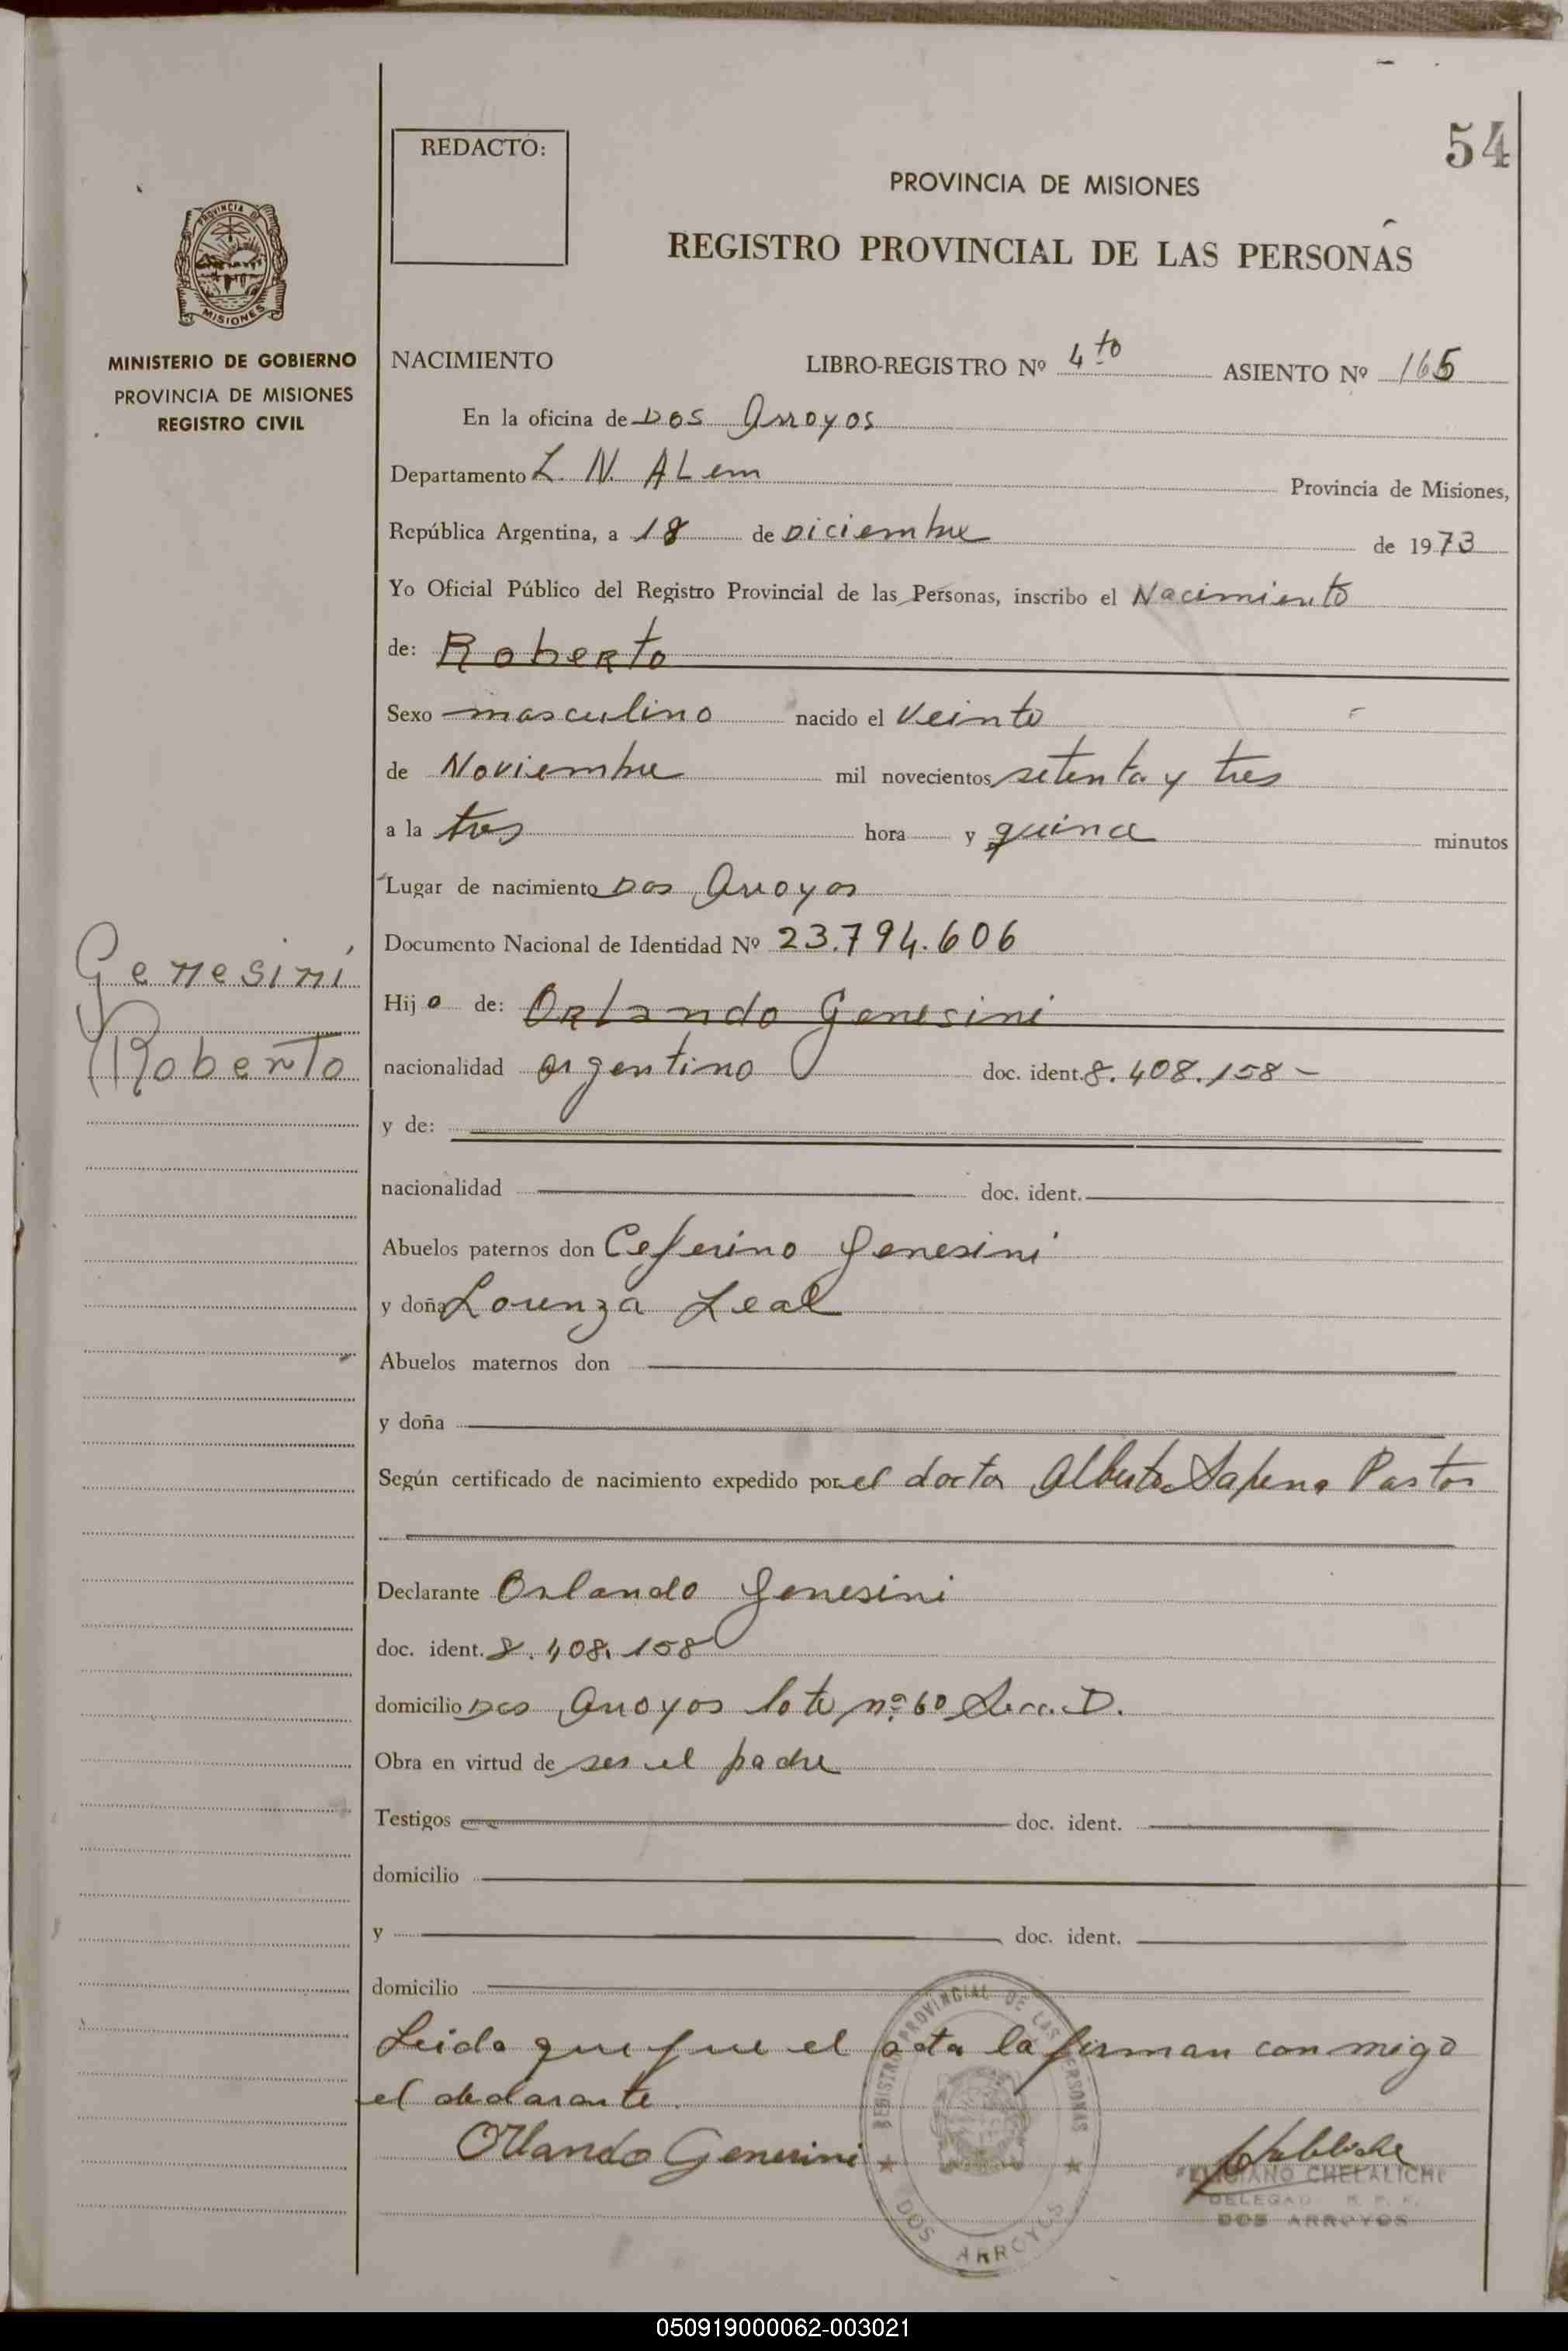 54
REDACTÓ:
PROVINCIA DE MISIONES
REGISTRO PROVINCIAL DE LAS PERSONAS
PROVINCIA DE
MISIONES
MINISTERIO DE GOBIERNO
PROVINCIA DE MISIONES
REGISTRO CIVIL
NACIMIENTO LIBRO-REGISTRO Nº 4to ASIENTO Nº 165
En la oficina de Dos Arroyos
Departamento L. N. ALem Provincia de Misiones,
República Argentina, a 18 de Diciembre de 1973
Yo Oficial Público del Registro Provincial de las Personas, inscribo el Nacimiento
de: Roberto
Sexo masculino nacido el Veinte
de Noviembre mil novecientos setenta y tres
a la tres hora y quince minutos
Lugar de nacimiento Dos Arroyos
Documento Nacional de Identidad Nº 23.794.606
Genesini
Roberto
Hijo de: Orlando Genesini
nacionalidad argentino doc. ident. 8.408.158 -
y de:
nacionalidad doc. ident.
Abuelos paternos don Ceferino Genesini
y doña Lorenza Leal
Abuelos maternos don
y doña
Según certificado de nacimiento expedido por el doctor Alberto Sapena Pastor
Declarante Orlando Genesini
doc. ident. 8.408.158
domicilio Dos Arroyos lote nº 60 Secc. D.
Obra en virtud de ser el padre
Testigos doc. ident.
domicilio
y doc. ident.
domicilio
Leida que fue el acta la firman conmigo
el declarante.
Orlando Genesini
REGISTRO PROVINCIAL DE LAS PERSONAS
DOS ARROYOS
FELICIANO CHELALICHE
DELEGAD R. P. P.
DOS ARROYOS
050919000062-003021